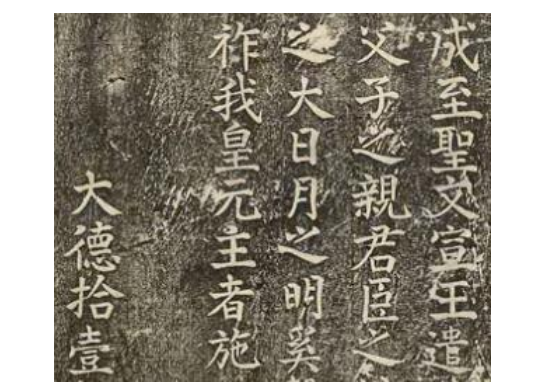 成至聖文宣王遣
父子之親君臣之
之大日月之明奚
祚我皇元主者施
大德拾壹